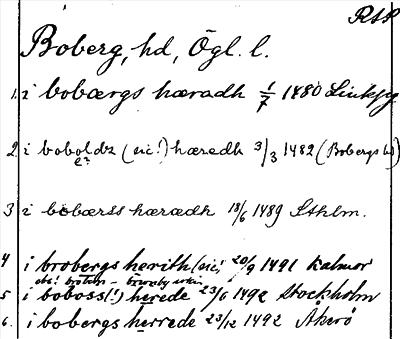 RAP
Boberg, hd, Ögl. l.
1. i bobærgs hæradh 1/7 1480 Linkpg
2. i boboldz (sic!) hæredh 3/3 1482 (Bobergs hd)
e?
3 i bobærss hæradh 18/6 1489 Sthlm.
4 i brobergs herith (sic! 20/9 1491 Kalmar
obs!
5 i boboss(!) herede 23/6 1492 Stockholm
6. i bobergs herrede 23/12 1492 Åkerö